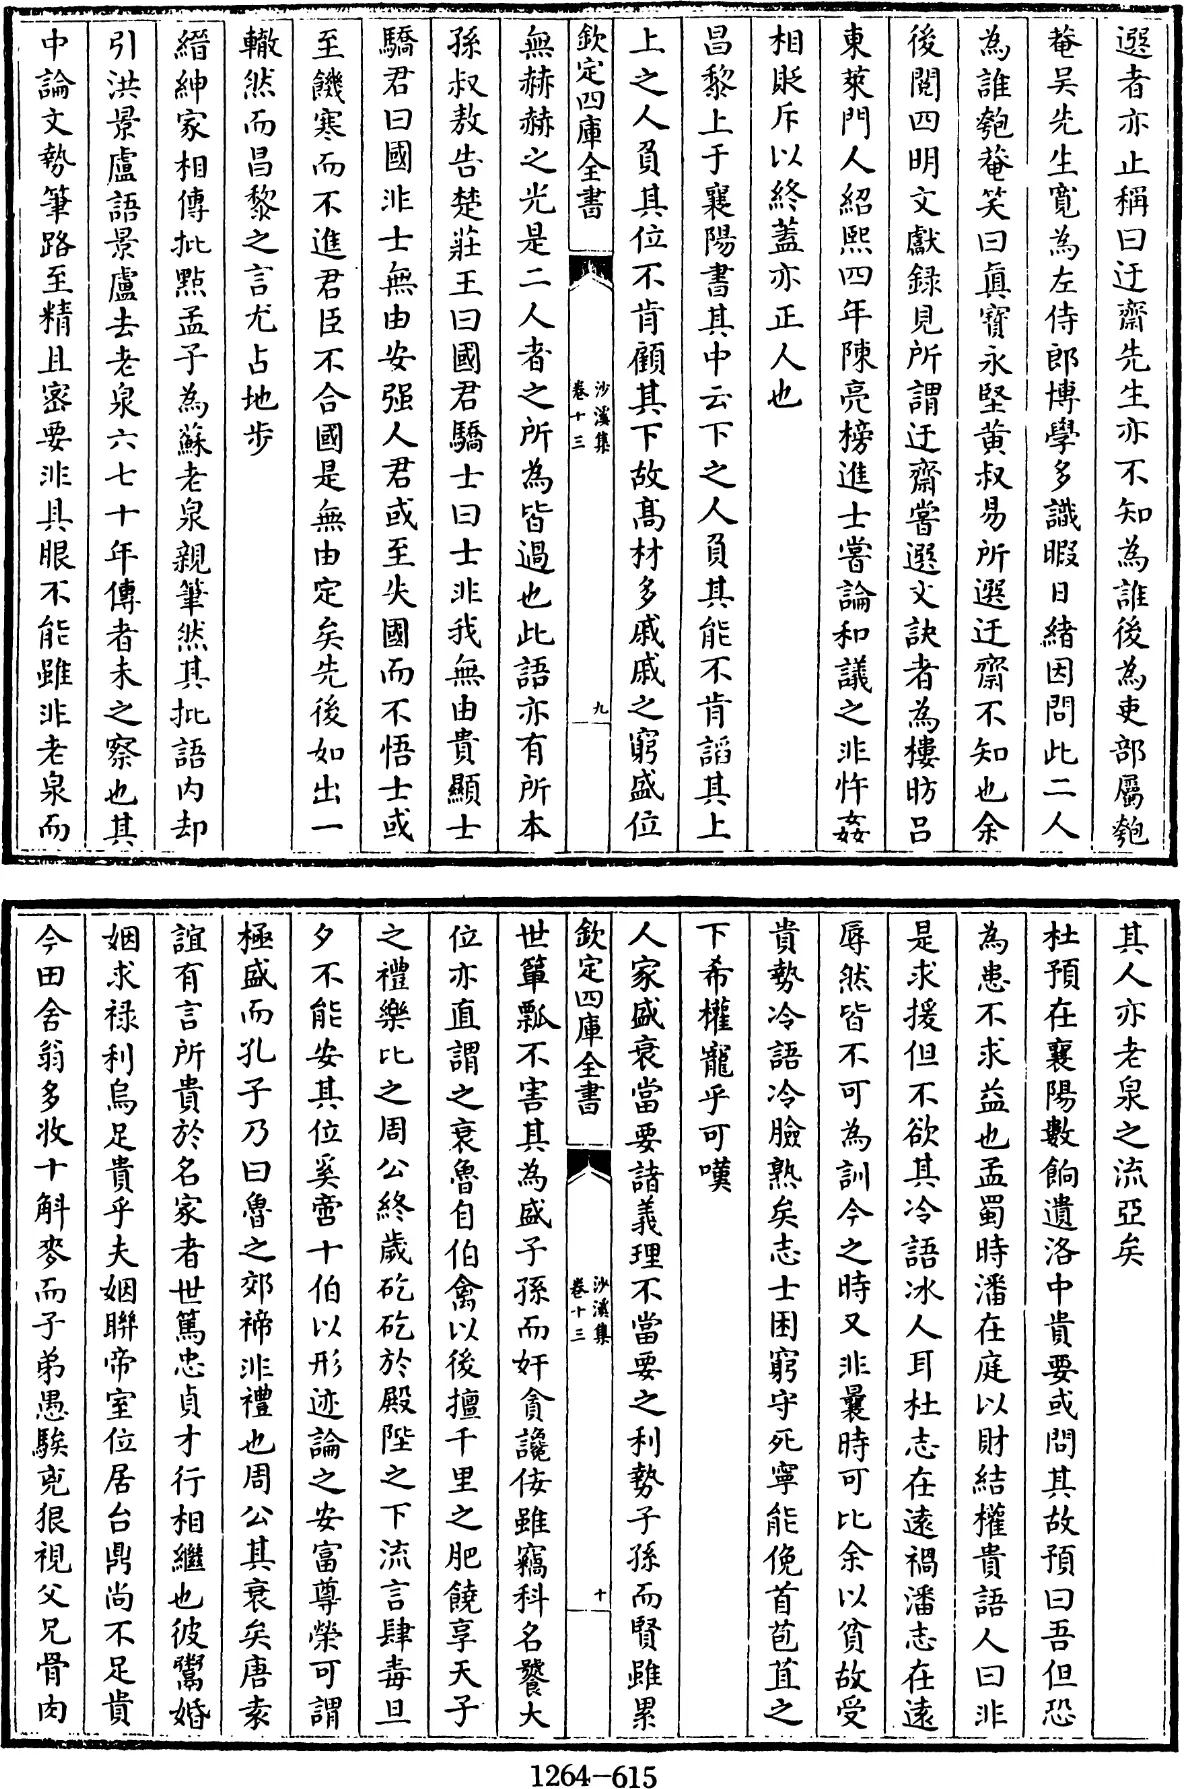 選者亦止稱曰迂齋先生亦不知為誰後為吏部屬匏
菴吳先生寛為左侍郎博學多識暇日緒因問此二人
為誰匏菴笑曰真寳永堅黄叔易所選迂齋不知也余
後閲四明文獻録見所謂迂齋嘗選文訣者為樓昉吕
東萊門人紹熙四年陳亮榜進士嘗論和議之非忤姦
相貶斥以終蓋亦正人也
昌黎上于襄陽書其中云下之人負其能不肯諂其上
上之人負其位不肯顧其下故髙材多戚戚之窮盛位
欽定四庫全書
沙溪集
卷十三
九
無赫赫之光是二人者之所為皆過也此語亦有所本
孫叔敖告楚莊王曰國君驕士曰士非我無由貴顯士
驕君曰國非士無由安强人君或至失國而不悟士或
至饑寒而不進君臣不合國是無由定矣先後如出一
轍然而昌黎之言尤占地步
縉紳家相傳批點孟子為蘇老泉親筆然其批語内却
引洪景盧語景盧去老泉六七十年傳者未之察也其
中論文勢筆路至精且密要非具眼不能雖非老泉而
其人亦老泉之流亞矣
杜預在襄陽數餉遺洛中貴要或問其故預曰吾但恐
為患不求益也孟蜀時潘在庭以財結權貴語人曰非
是求援但不欲其冷語冰人耳杜志在逺禍潘志在逺
辱然皆不可為訓今之時又非曩時可比余以貧故受
貴勢冷語冷臉熟矣志士困窮守死寧能俛首苞苴之
下希權寵乎可嘆
人家盛衰當要諸義理不當要之利勢子孫而賢雖累
欽定四庫全書
沙溪集
卷十三
十
世簞瓢不害其為盛子孫而奸貪讒佞雖竊科名饕大
位亦直謂之衰魯自伯禽以後擅千里之肥饒享天子
之禮樂比之周公終歲矻矻於殿陛之下流言肆毒旦
夕不能安其位奚啻十伯以形迹論之安富尊榮可謂
極盛而孔子乃曰魯之郊禘非禮也周公其衰矣唐袁
誼有言所貴於名家者世篤忠貞才行相繼也彼鬻婚
姻求禄利烏足貴乎夫姻聨帝室位居台鼎尚不足貴
今田舍翁多收十斛麥而子弟愚騃兇狠視父兄骨肉
1264-615